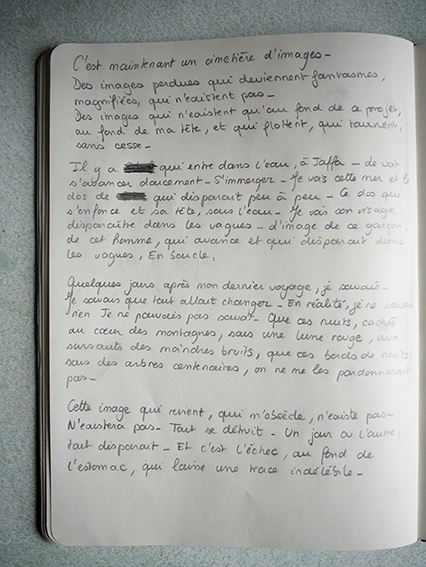 C'est maintenant un cimetière d'images -
Des images perdues qui deviennent fantasmes,
magnifiées, qui n'existent pas -
Des images qui n'existent qu'au fond de ce projet,
au fond de ma tête, et qui flottent, qui tournent,
sans cesse -
Il y a qui entre dans l'eau, à Jaffa - Je vois
s'avancer doucement - S'immerger - Je vois cette mer et le
dos de qui disparait peu à peu - Ce dos qui
s'enfonce et sa tête, sous l'eau - Je vois son visage
disparaître dans les vagues - L'image de ce garçon,
de cet homme, qui avance et qui disparait dans
les vagues, En boucle,
Quelques jours après mon dernier voyage, je savais -
Je savais que tout allait changer - En réalité, je ne savais
rien. Je ne pouvais pas savoir - Que ces nuits, cachés
au cœur des montagnes, sous une lune rouge, aux
sursauts des moindres bruits, que ces bords de routes,
sous des arbres centenaires, on ne me les pardonnerait
pas -
Cette image qui revient, qui m'obsède, n'existe pas -
N'existera pas - Tout se détruit - Un jour ou l'autre,
tout disparait - Et c'est l'échec, au fond de
l'estomac, qui laisse une trace indélébile -